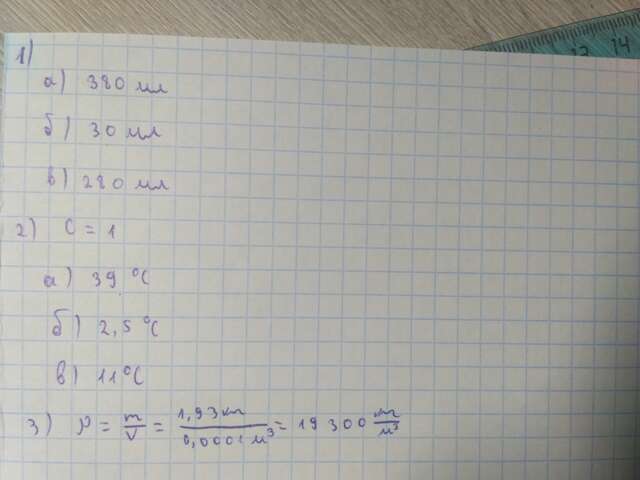 1)
а) 380 мл
б) 30 мл
в) 280 мл
2) C = 1
а) 39 °C
б) 2,5 °C
в) 11 °C
3) ρ = m/V = 1,93 кг / 0,0001 м³ = 19 300 кг/м³
13 14